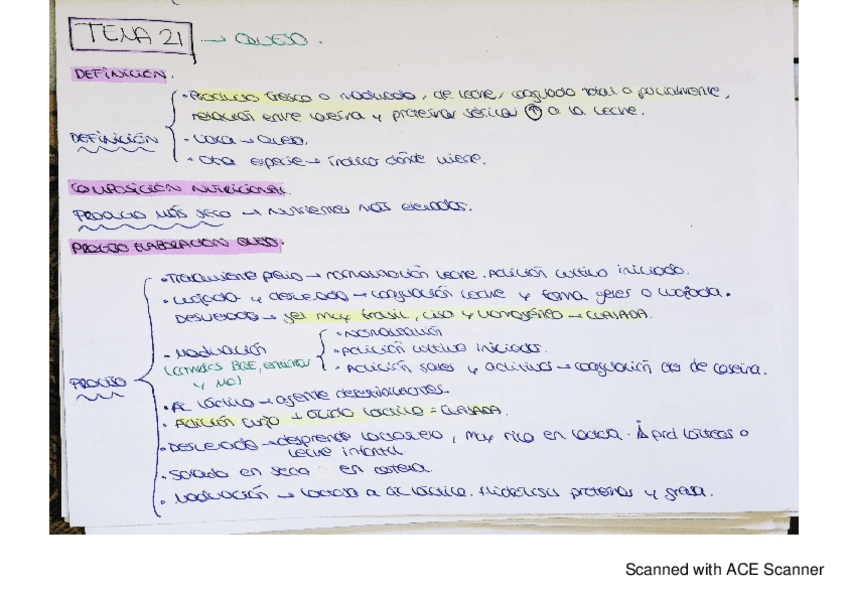 TEMA 21 → QUESO.
DEFINICIÓN.
• Producto fresco o madurado, de leche, coagulado total o parcialmente,
relación entre caseína y proteínas séricas ↑ a la leche.
DEFINICIÓN
• Vaca → Queso.
• Otra especie → indicar dónde viene.
COMPOSICIÓN NUTRICIONAL.
PRODUCTO MÁS SECO → nutrientes más elevados.
PROCESO ELABORACIÓN QUESO.
• Tratamiento previo → normalización leche. Adición cultivo iniciado.
• Cuajada y desuerado → coagulación leche y forma geles o cuajada.
Desuerado → gel muy frágil, liso y homogéneo → CUAJADA.
• Normalización
• Maduración
• Adición cultivo iniciador.
• Adición sales y aditivos → coagulación de caseína.
PROCESO
y MO)
• Ac láctico → agente
• Adición cuajo → ácido láctico = CUAJADA.
• Desuerado → desprende lactosuero, muy rico en lactosa. prod lácteos o
leche infantil
• Salado en seco en
• Maduración → lactosa a ác láctico. Hidrólisis proteínas y grasa.
Scanned with ACE Scanner